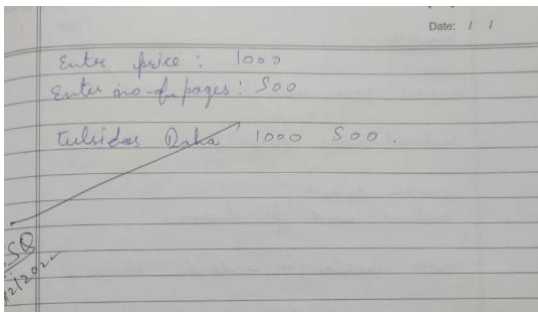 Date: / /
Enter price : 1000
Enter no of pages : 500
Tulsidas Daha 1000 500.
SQ
12/202